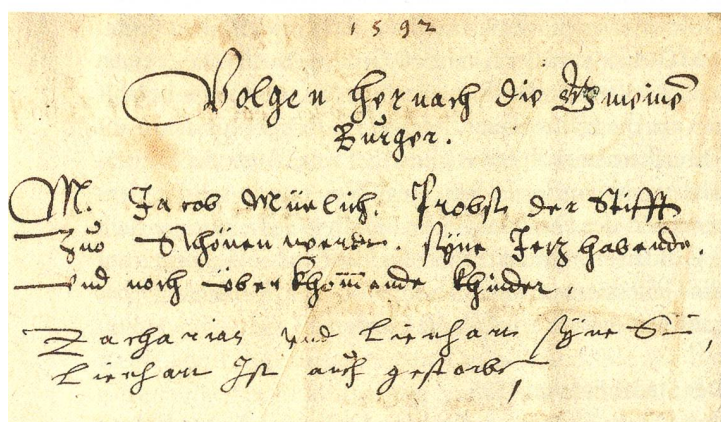 1592
Volgen hernach die Gmeine
Burger.
M. Jacob Mürlich. Probst der Stifft
Zuo Schönenwerdt. syne Jetz habende.
vnd noch überkhommende khinder.
Zacharias vnd Lienhart syne Sün,
Lienhart Ist auch gestorbe,